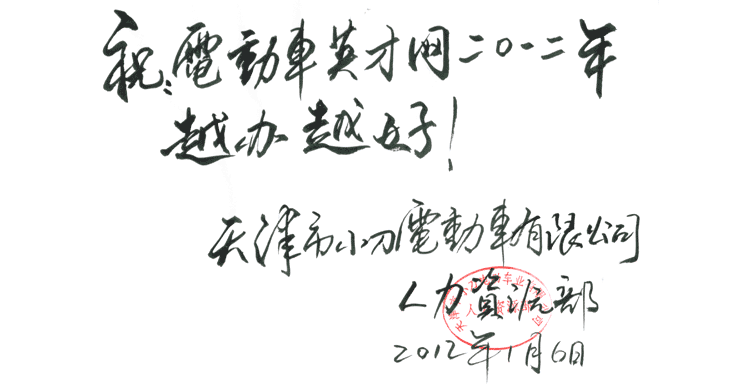 祝:電動車英才网二〇一二年
越办越好!
天津市小刀電動車有限公司
人力資源部
2012年1月6日